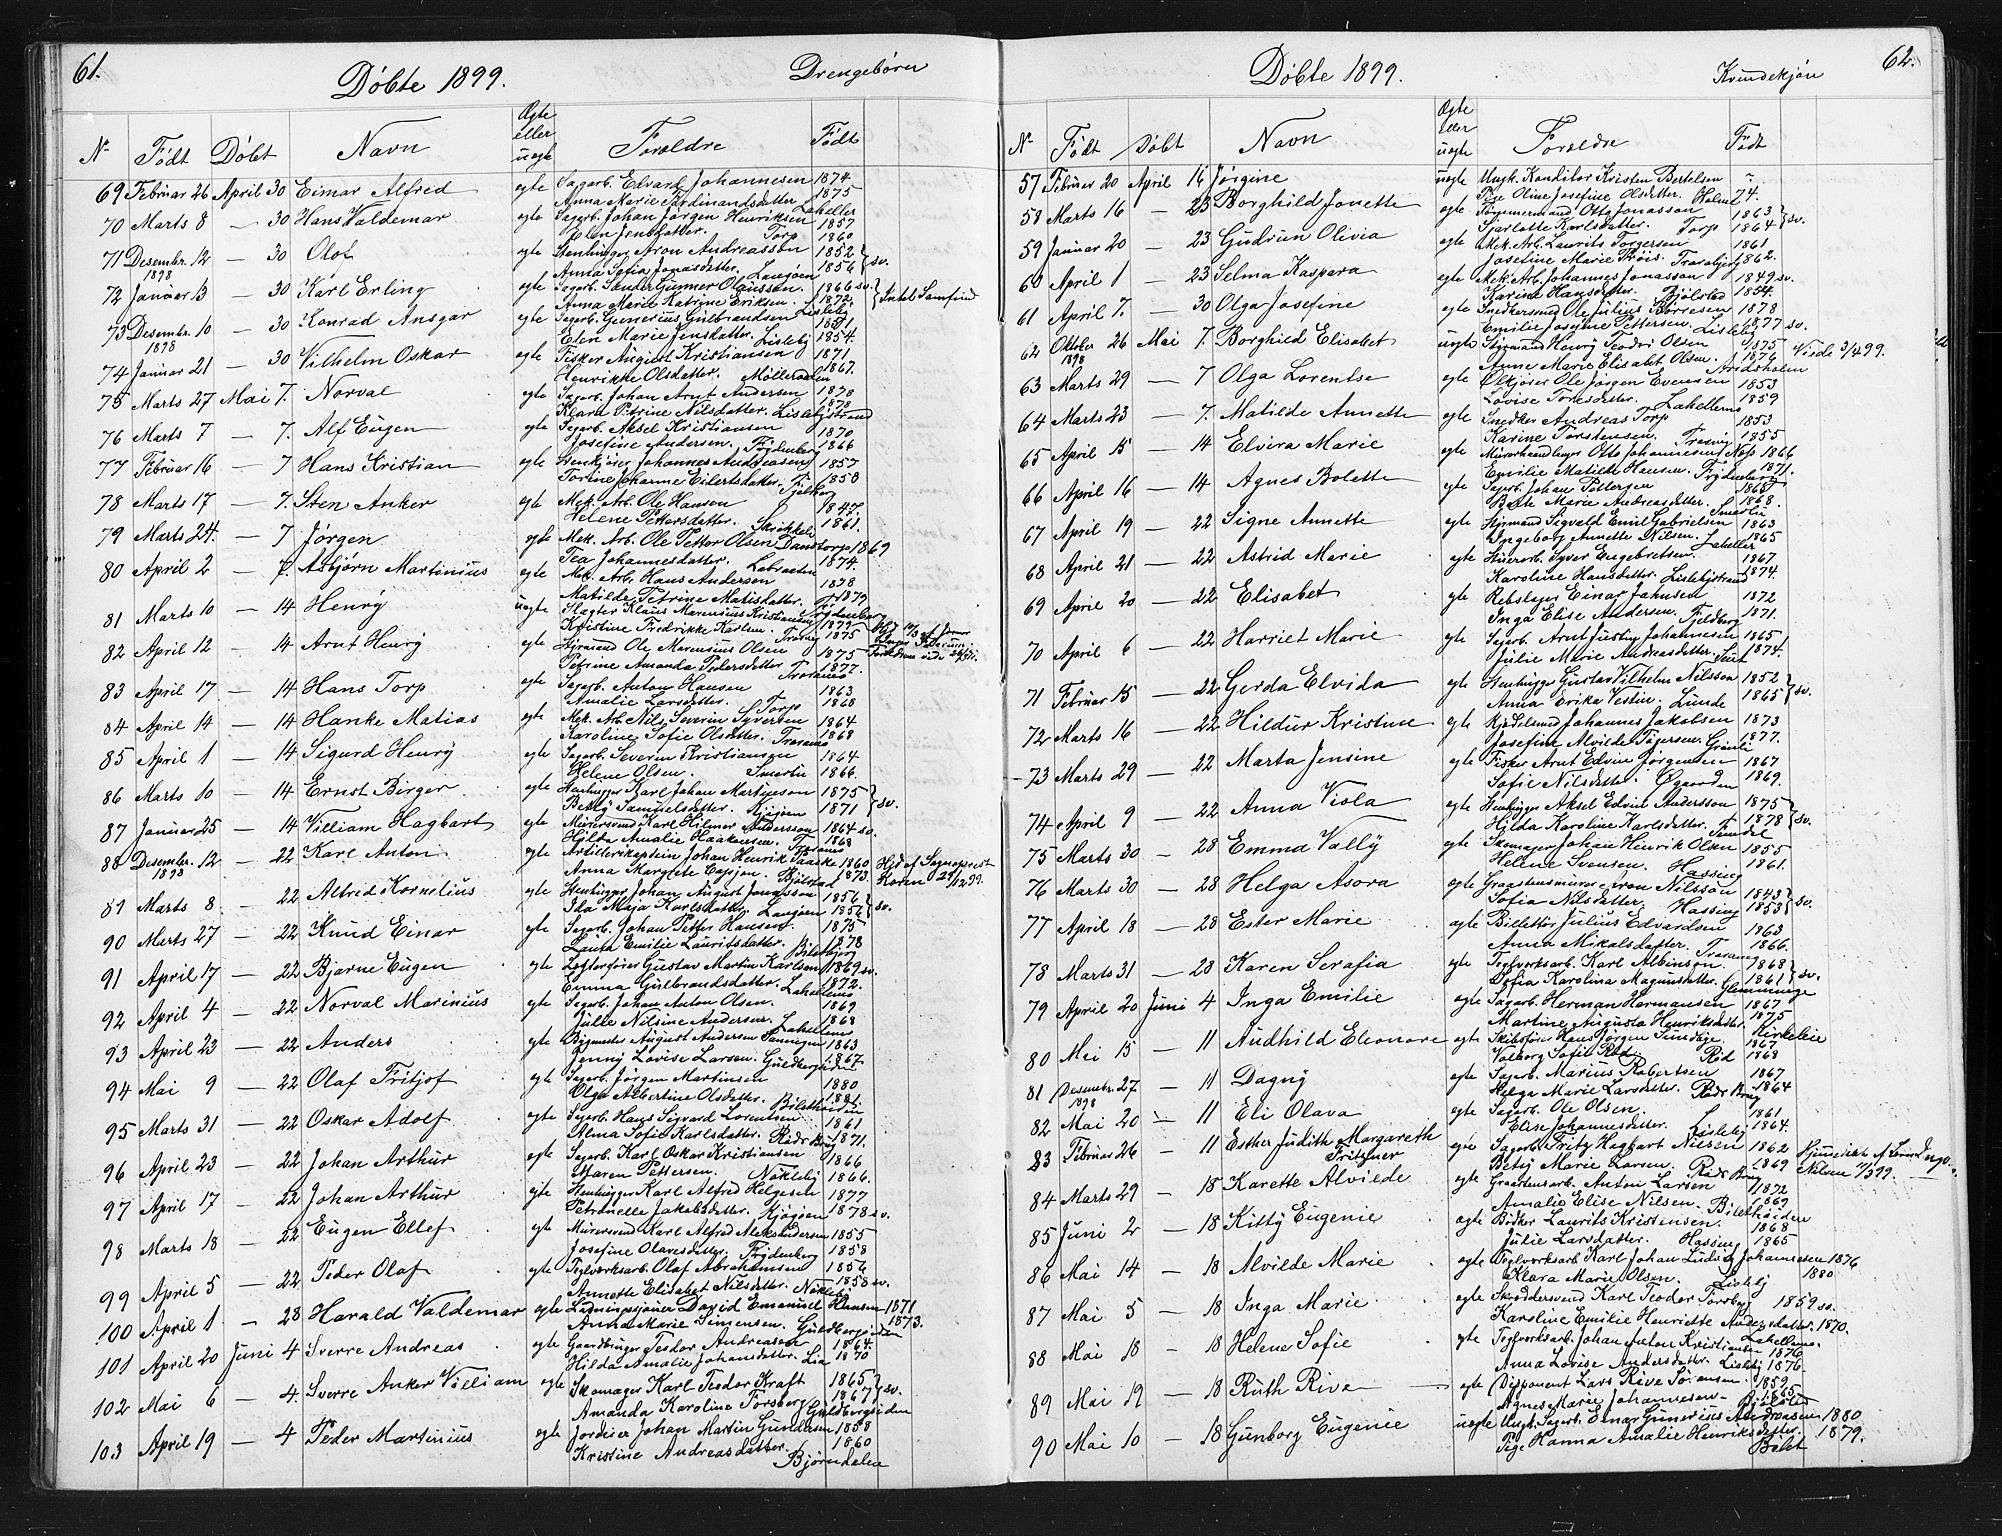 61.
Döbte 1899.
Drengebörn
No Födt Döbt Navn Ægte eller uægte Forældre Födt
69 Februar 26 April 30 Eimar Alfred egte Sagarb. Edvard Johannesen 1874
Anna Marie Ferdinandsdatter 1875
70 Marts 8 — 30 Hans Valdemar egte Sagarb. Johan Jörgen Henriksen Lahellen 1857
Elen Jensdatter. Torp 1860
71 Desembr. 12 1898 — 30 Olof egte Stenhugger Aron Andreasson 1852
Anna Sofia Jonasdatter. Langöen 1856 } sv.
72 Januar 13 — 30 Karl Erling egte Sagarb. Gunner Olaussen. 1866 sv.
Anna Marie Katrine Eriksen. 1872 } Intet Samfund
73 Desembr. 10 1898 — 30 Konrad Ansgar egte Sagarb. Gunerius Gulbrandsen Lisleby 1851
Elen Marie Jensdatter. Lisleby 1854.
74 Januar 21 — 30 Vilhelm Oskar egte Fisker August Kristiansen 1871
Henrikke Olsdatter. Mölleradalen 1867.
75 Marts 27 Mai 7. Norval egte Sagarb. Johan Arnt Andersen 1878
Klara Petrine Nilsdatter. Lislebystrand 1878
76 Marts 7 — 7. Alf Eugen egte Sagarb. Aksel Kristiansen 1870
Josefine Andersen. Frydenberg 1866
77 Februar 16 — 7 Hans Kristian egte Stenkjörer Johannes Andreasen 1857
Torine Johanne Eilertsdatter. 1858
78 Marts 17 — 7. Sten Anker egte Mek. Arb. Ole Hansen 1847.
Helene Pettersdatter. 1861.
79 Marts 24. — 7 Jörgen egte Mek. Arb. Ole Pettor Olsen Danstorp 1869
Tea Johannesdatter. Labraaten 1874.
80 April 2 — 7. Asbjörn Martinius egte Mek. Arb. Hans Andersen 1878
Matilde Petrine Matisdatter. 1879
81 Marts 10 — 14 Henry uegte Slagter Klaus Marensius Kristiansen Frydenberg
Kristine Fredrikke Karlsen. 1879
82 April 12 — 14 Arnt Henry egte Styrmand Ole Marensius Olsen 1875
Petrine Amanda Pedersdatter Trosvik 1877.
83 April 17 — 14 Hans Torp egte Sagarb. Anton Hansen 1863
Amalie Larsdatter. Torp 1868
84 April 14 — 14 Hanke Matias egte Mek. Arb Nils Severin Syversen 1864
Karoline Sofie Olsdatter. Trosvik 1868
85 April 1 — 14 Sigurd Henry egte Sagarb. Severin Kristiansen 1864
Helene Olsen. Smertu 1866.
86 Marts 10 — 14 Ernst Birger egte Stenhugger Karl Johan Martinson 1875
Betty Samuelsdatter. Kjöjoen 1871 } sv.
87 Januar 25 — 14 William Hagbart egte Murersvend Karl Hilmer Andersson 1864 sv.
Hilda Amalie Haakonsen. 1868
88 Desembr. 12 1898 — 22 Karl Anton egte Artillerikaptein Johan Henrik Paaske 1860
Anna Margrete Capjon. Bjölstad 1873. Hid af Sognepræst Koren 29/12 99.
89 Marts 8 — 22 Alfred Kornelius egte Stenhugger Johan August Jonasson 1856
Ida Maja Karlsdatter. Langöen 1856 } sv.
90 Marts 27 — 22 Knud Einar egte Sagarb. Johan Petter Hansen. 1875
Laura Emilie Lauritsdatter. 1878
91 April 17 — 22 Bjarne Eugen egte Legterförer Gustav Martin Karlsen 1869 sv.
Emma Gulbrandsdatter. Lahellens 1872.
92 April 4 — 22 Norval Marinius egte Sagarb. Johan Anton Olsen. 1869
Julie Nilsine Andersen. Lahellens 1868
93 April 23 — 22 Anders egte Bygmester August Andersen 1863
Jenny Lovise Larsen. Guldbergsiden 1867.
94 Mai 9 — 22 Olaf Fritjof egte Sagarb. Jörgen Martinsen 1880
Olga Albertine Olsdatter. 1881.
95 Marts 31 — 22 Oskar Adolf egte Sagarb. Hans Sigvard Lorentsen 1861
Alma Sofie Karlsdatter. Röds Brug 1871.
96 April 23 — 22 Johan Arthur egte Sagarb. Karl Oskar Kristiansen 1866
Maren Pettersen. Nökleby 1866.
97 April 17 — 22 Johan Arthur egte Stenhugger Karl Alfred Helgesen 1877
Petronelle Jakobsdatter. Kjöjoen 1878 sv.
98 Marts 18 — 22 Eugen Ellef egte Murersvend Karl Alfred Aleksandersen 1855
Josefine Olavesdatter. Frydenberg 1858
99 April 5 — 22 Peder Olaf egte Teglverksarb. Olaf Abrahamsen 1856
Annette Elisabet Nilsdatter. Nökleby 1858 sv.
100 April 1 — 28 Harald Valdemar egte David Emanuel Hansen 1871
Anna Marie Simensen. Guldbergsiden 1873.
101 April 20 Juni 4 Sverre Andreas egte Gaardbruger Teodor Andreasen 1864.
Hilda Amalie Johansdatter. Lia 1870
102 Mai 6 — 4. Sverre Anker William egte Skomager Karl Teodor Kraft 1865
Amanda Karoline Forsberg Guldbergsiden 1867 } sv.
103 April 19 — 4 Peder Martinius egte Jordeier Johan Martin Gundersen 1858
Kristine Andreasdatter. 1860
Björndalen
62.
Döbte 1899.
Kvindekjön
No Födt Döbt Navn Ægte eller uægte Forældre Födt
57 Februar 20 April 16 Jörgine uegte Ungk. Konditor Kristen Bertelsen
Pige Oline Josefine Olsdatter. Holmen 74.
58 Marts 16 — 23 Borghild Jonette egte Tömmermand Otto Jonasson 1863
Sjarlotte Karlsdatter. Torp 1864 } sv.
59 Januar 20 — 23 Gudrun Olivia egte Mek. Arb. Laurits Torgersen 1861
Josefine Marie Thöis. Traraberg 1862.
60 April 1 — 23 Selma Kaspara egte Mek. Arb. Johannes Jonasson 1849 sv.
Karine Hansdatter. Bjölstad 1854.
61 April 7. — 30 Olga Josefine egte Snedkersvend Ole Julius Börresen 1878
Emilie Josefine Pettersen. Lisleby 1877 sv.
62 Oktober 26 1898 Mai 7. Borghild Elisabet uegte Styrmand Henry Teodor Olsen 1875
Anne Marie Elisabet Olsen. 1876 Arisholm Viede 3/4 99.
63 Marts 29 — 7 Olga Lorentse egte Ölkjörer Ole Jörgen Evensen 1853
Lovise Toresdatter. Lahellens 1859
64 Marts 23 — 7. Matilde Annette egte Snedker Andreas Torp 1853
Karine Torstensen. Trosvig 1855
65 April 15 — 14 Elvira Marie egte Murerhandlanger Otto Johannesen Næs 1866
Emilie Matilde Hansen. Frydenberg 1871.
66 April 16 — 14 Agnes Bolette egte Sagarb. Johan Pettersen 1865
Berte Marie Andreasdatter. Smertu 1868.
67 April 19 — 22 Signe Annette egte Styrmand Sigvald Emil Gabrielsen 1863
Ingeborg Annette Nilsen. Lahellen 1865
68 April 21 — 22 Astrid Marie egte Stuerarb. Syver Engebretsen. 1867
Karoline Hansdatter. Lislebystrand 1874.
69 April 20 — 22 Elisabet egte Rebslager Einar Jahnsen 1872
Inga Elise Andersen. Fjeldberg 1871.
70 April 6 — 22 Harriet Marie egte Sagarb. Arnt Justiny Johannesen 1865
Julie Marie Andreasdatter. Leut 1874.
71 Februar 15 — 22 Gerda Elvida egte Stenhugger Gustav Vilhelm Nilsson 1852
Anna Erika Vestin. Lunde 1865 } sv.
72 Marts 16 — 22 Hildur Kristine egte Kjedelsmed Johannes Jakobsen 1873
Josefine Alvilde Pagersen. Grönli 1877.
73 Marts 29 — 22 Marta Jensine egte Fisker Arnt Edvin Jörgensen 1867
Sofie Nilsdatter. Ögaarden 1869.
74 April 9 — 22 Anna Viola egte Stenhugger Aksel Edvin Andersson 1875
Hilda Karoline Karlsdatter. 1878 } sv.
75 Marts 30 — 28 Emma Vally egte Skomager Johan Henrik Olsen 1855
Helene Svensen. Hassing 1861.
76 Marts 30 — 28 Helga Asora egte Graastensmurer Aron Nilsson 1843
Sofia Nilsdatter. Hassing 1853 } sv.
77 April 18 — 28 Ester Marie egte Billettör Julius Edvardsen 1863
Anna Mikalsdatter. Trosvig 1866.
78 Marts 31 — 28 Karen Serafia egte Teglverksarb. Karl Albinson. 1868
Sofia Karolina Magnusdatter. 1861 } sv. Glemminge
79 April 20 Juni 4 Inga Emilie egte Sagarb. Herman Hermansen 1867
Martine Augusta Henriksdatter. 1875 Kirkeleie
80 Mai 15 — 11 Audhild Eleonore egte Skibsförer Hans Jörgen Sundöge. 1867
Valborg Sofie Röd. Röd 1868
81 Desembr. 27 1898 — 11 Dagny egte Sagarb. Marius Robertsen 1867
Helga Marie Larsdatter. Röds Brug 1864
82 Mai 20 — 11 Eli Olava egte Sagarb. Ole Olsen. 1861
Elise Johannesdatter. Lisleby 1864.
83 Februar 26 — 11 Esther Judith Margarethe Fritzner egte Sagarb. Fritz Hagbart Nilsen 1862
Betsy Marie Larsen. Röds Brug 1869 Hjemmedöbt af Nilsen 11/3 99.
84 Marts 29 — 18 Karette Alvilde egte Graastensarb. Anton Larsen 1872
Amalie Elise Nilsen. 1869
85 Juni 2 — 18 Kitty Eugenie egte Bödker Laurits Kristensen. 1868
Julie Larsdatter. Hassing 1865
86 Mai 14 — 18 Alvilde Marie egte Teglverksarb Karl Johan Ludvig Johannesen 1876
Klara Marie Olsen. Lisleby 1880
87 Mai 5 — 18 Inga Marie egte Skræddersvend Karl Teodor Forsberg 1859 sv.
Karoline Emilie Henriette Andersdatter. 1870.
88 Mai 18 — 18 Helene Sofie egte Teglverksarb. Johan Anton Kristiansen Lahellens 1876
Anna Lovise Andersdatter. Lisleby 1876.
89 Mai 19 — 18 Ruth Rive egte Disponent Lars Rive Sörensen. 1859
Agnes Marie Johannesen. Bjölstad 1865
90 Mai 10 — 18 Gunborg Eugenie uegte Ungk. Sagarb. Einar Gunerius Andreasen 1880
Pige Hanna Amalie Henriksdatter. 1879.